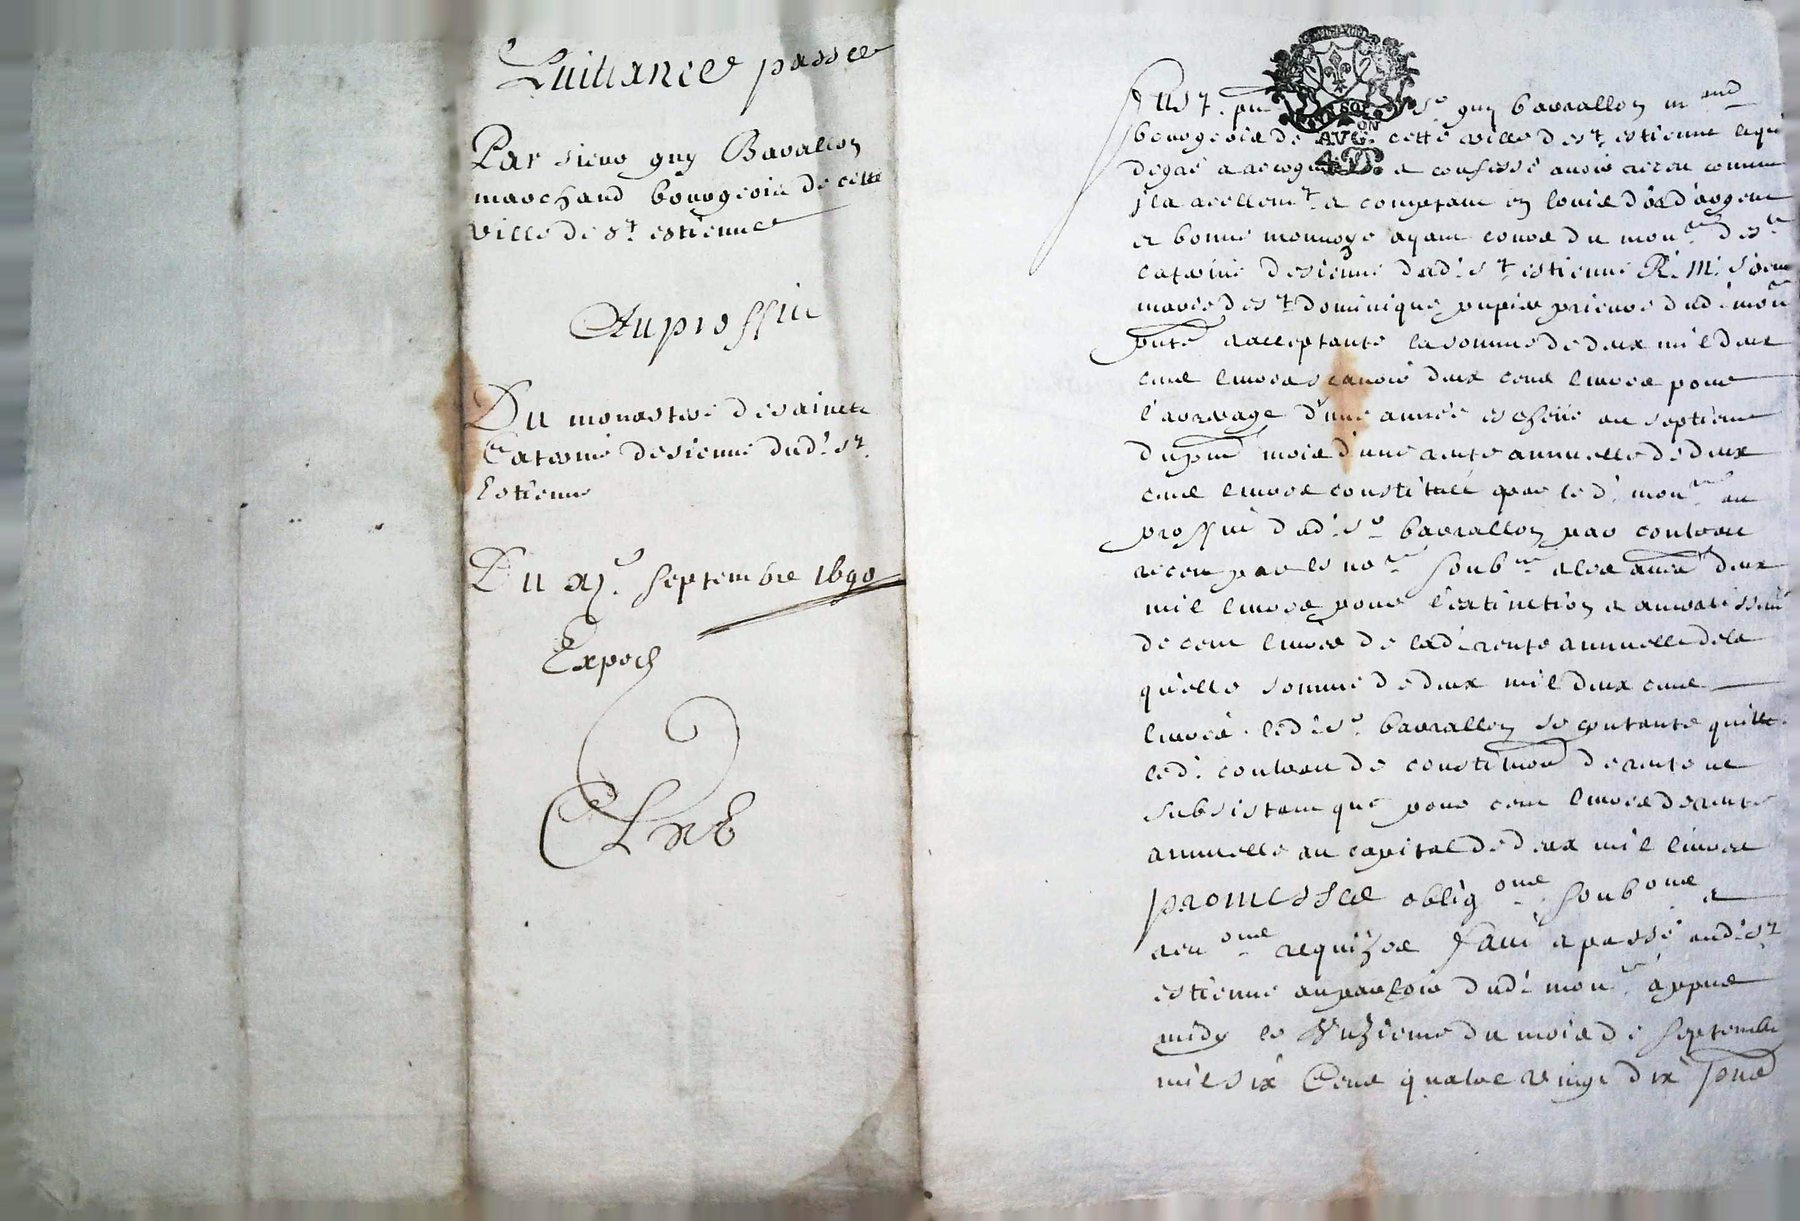 Quittance passee
Par sieur guy Bavallon
marchand bourgeois de cette
ville de st estienne
Au proffit
Du monastere de saincte
Catarine de sienne dud. st
Estienne
Du xj.e septembre 1690
Exped
Fust pnt sr guy bavallon march
bourgeois de cette ville de st estienne lequel
degré a recogneu & confessé avoir receu comme
il a reellemt & comptant en louis d'or d'argent
et bonne monnoye ayant cours du monre de ste
catarine de sienne dud. st estienne R. M. soeur
marie de st dominique pupier prieure dud. monre
pnte & acceptante la somme de deux mil deux
cent livres scavoir deux cent livres pour
l'arrerage d'une année escheue au septieme
du pnt mois d'une rente annuelle de deux
cent livres constituée par led. monre au
proffit dud. sr bavallon par contrau
receu par le nore soubné & les autres deux
mil livres pour l'extinction & amortissemt
de cent livres de lad. rente annuelle de la
quelle somme de deux mil deux cent
livres led. sr bavallon se contante quitte
led. contrau de constitution de rente ne
subsistant que pour cent livres de rente
annuelle au capital de deux mil livres
promesses obligons soubons &
renons requises fait & passé aud. st
estienne au parloir dud. monre appres
midy le unzieme du mois de septembre
mil six cens quatre vingt dix pnts